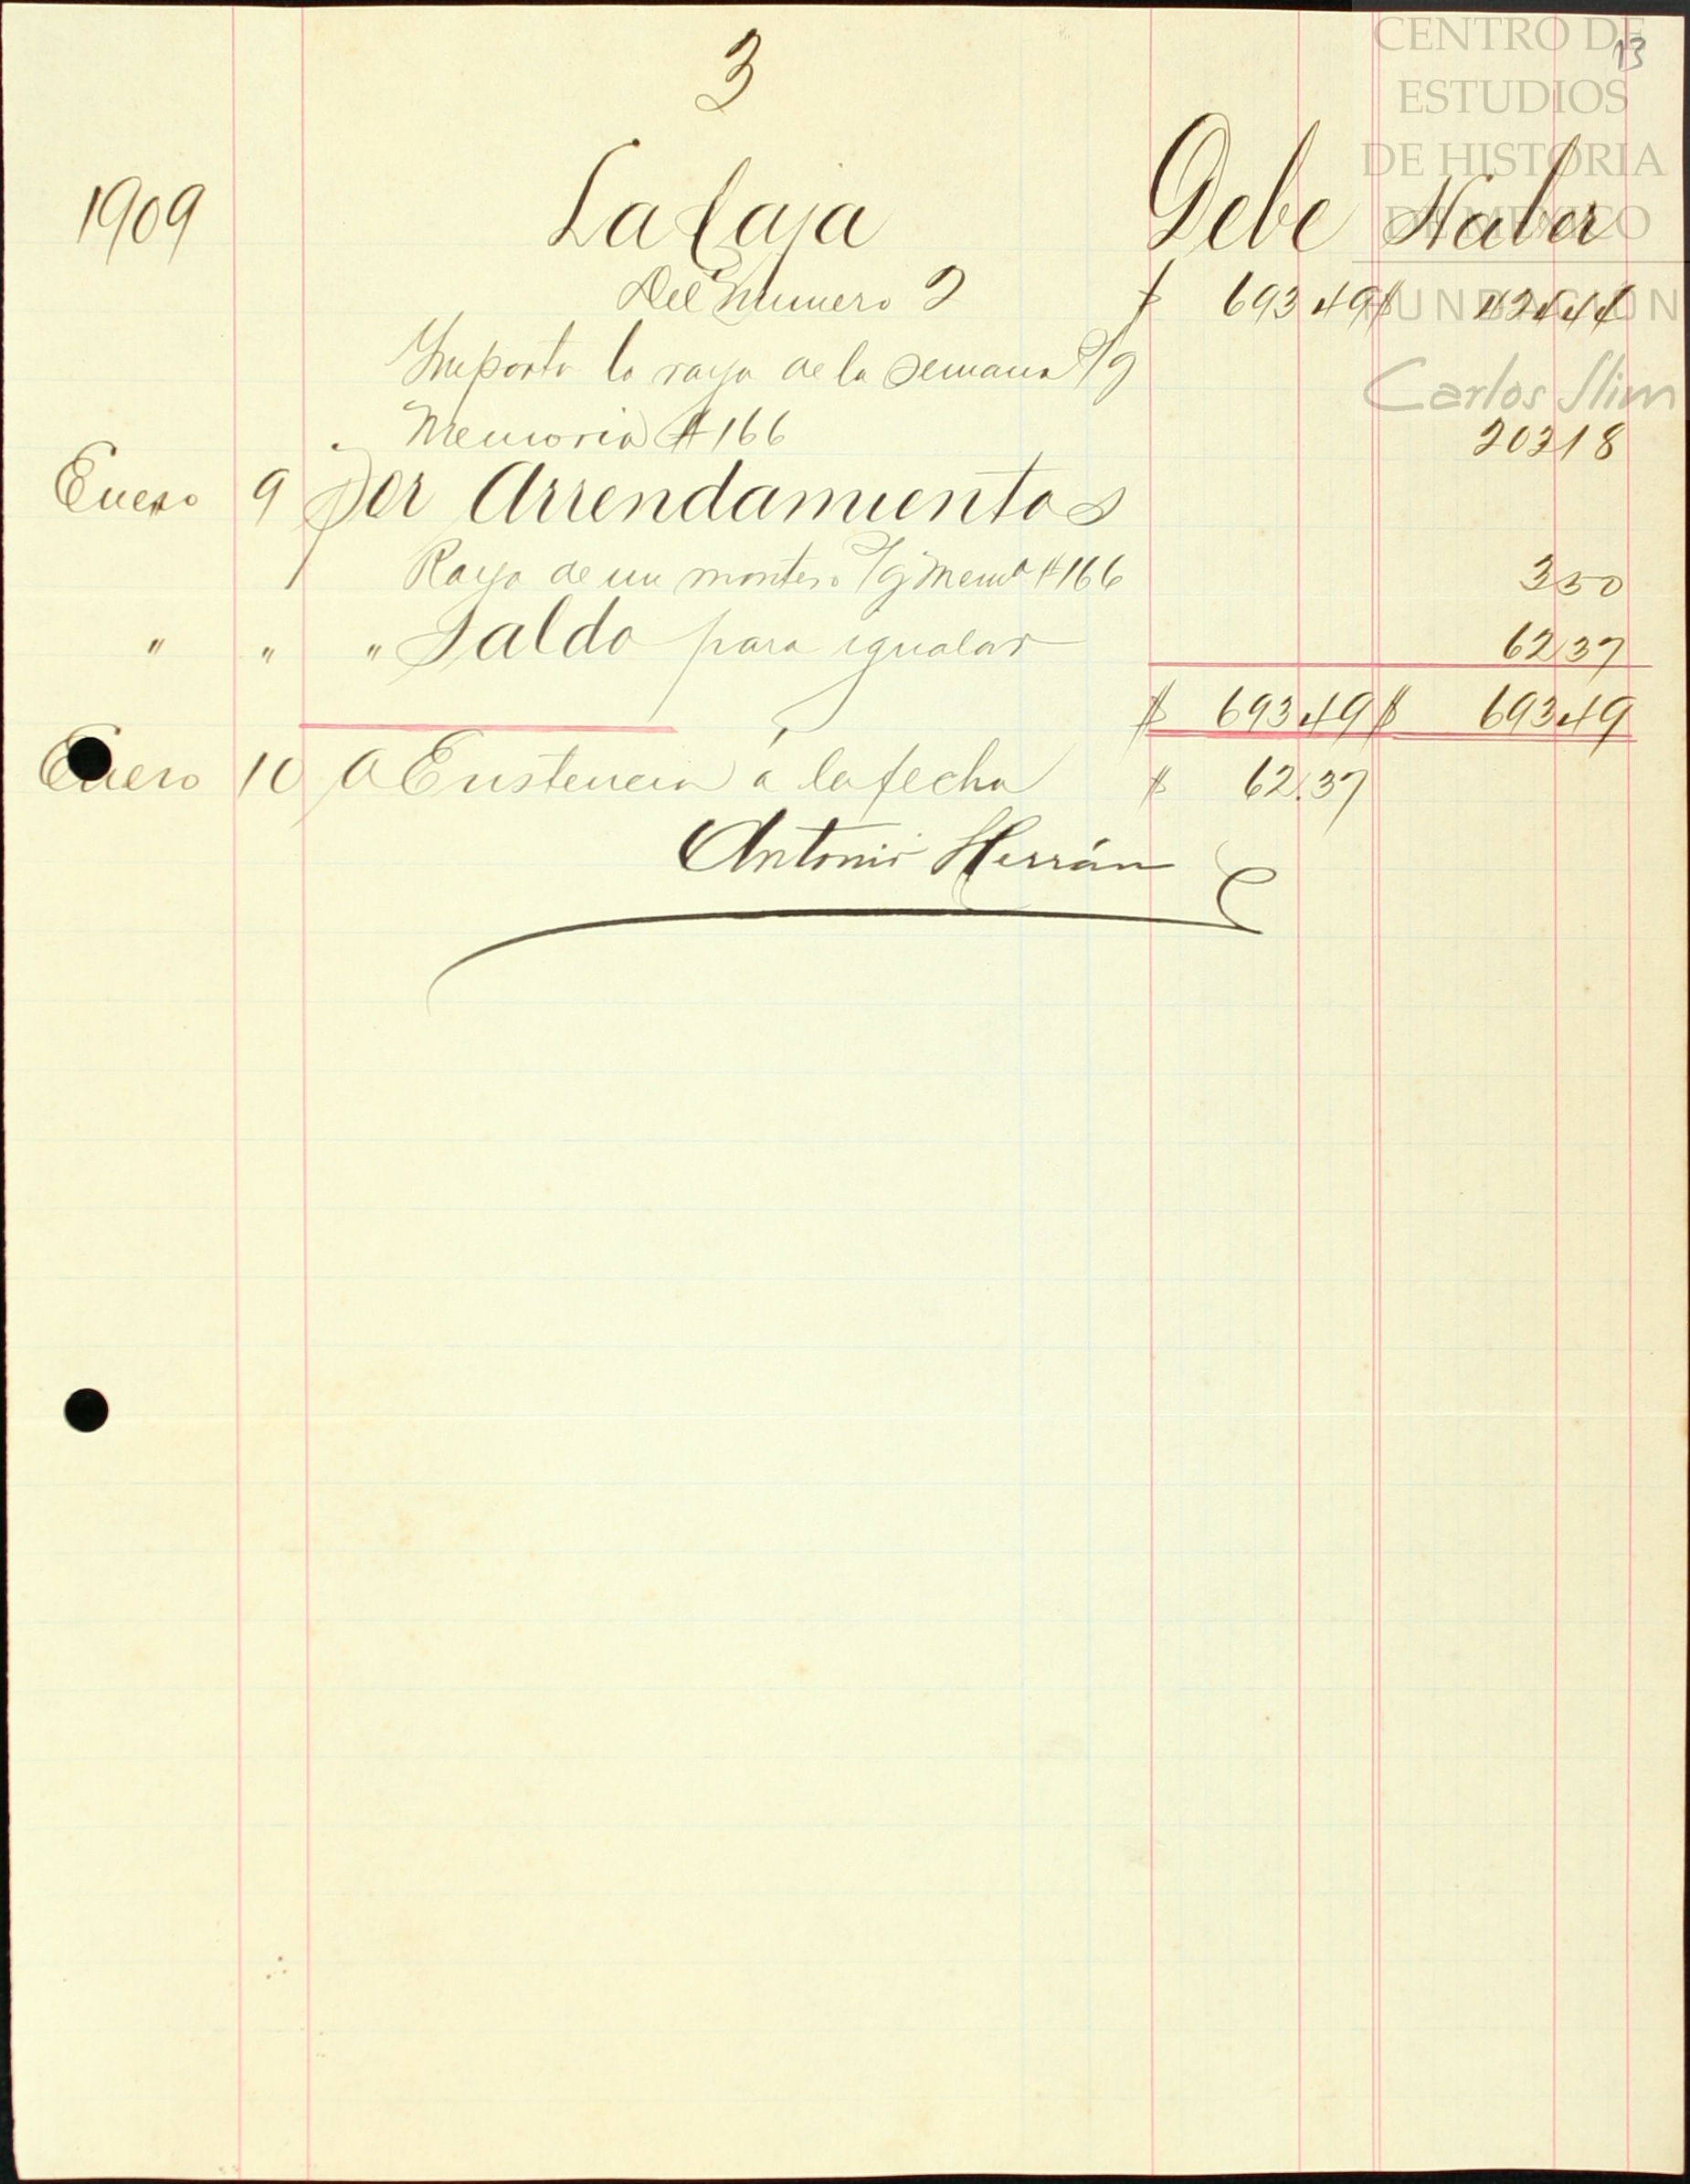 CENTRO DE
ESTUDIOS
DE HISTORIA
DE MÉXICO
FUNDACIÓN
Carlos Slim
13
3
1909 La Caja Debe Haber
Del Numero 2 $ 693 49 $ 424 44
Importa la raya de la semana
Memoria # 166 203 18
Enero 9 Por Arrendamientos
Raya de un montero Mem.ª # 166 3 50
" " " Saldo para igualar 62 37
$ 693 49 $ 693 49
Enero 10 A Existencia á la fecha $ 62.37
Antonio Herrán